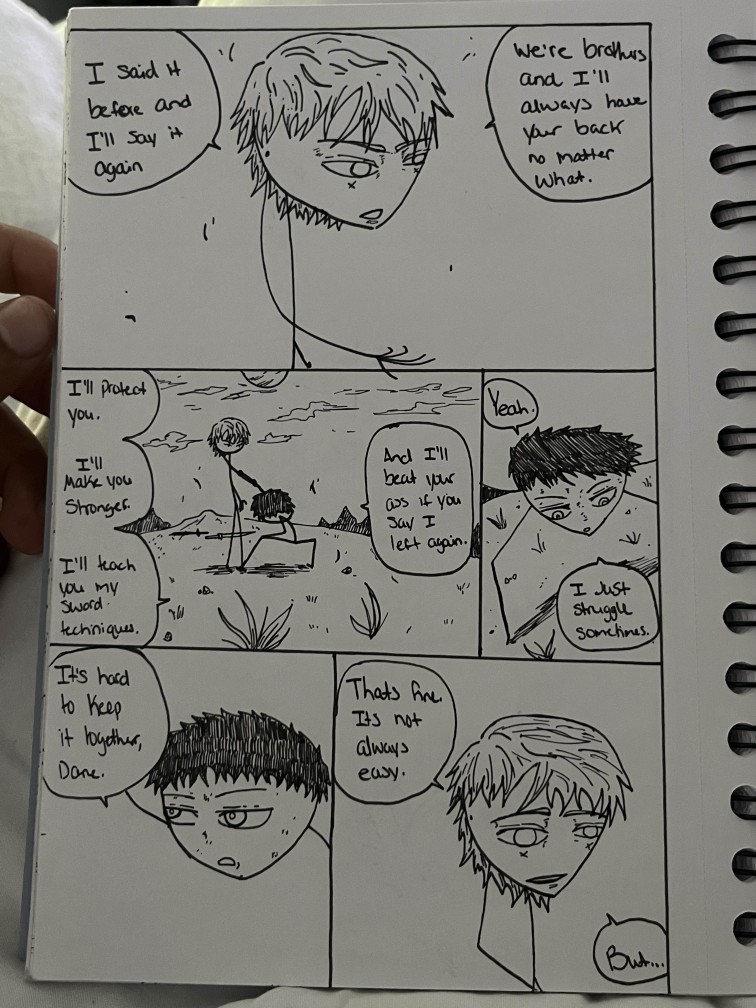 I said it
before and
I'll say it
again
We're brothers
and I'll
always have
your back
no matter
what.
I'll protect
you.
I'll
Make you
Stronger.
I'll teach
you my
sword
techniques.
And I'll
beat your
ass if you
say I
left again.
Yeah.
I Just
struggle
sometimes.
It's hard
to keep
it together,
Dane.
Thats fine.
Its not
always
easy.
But...